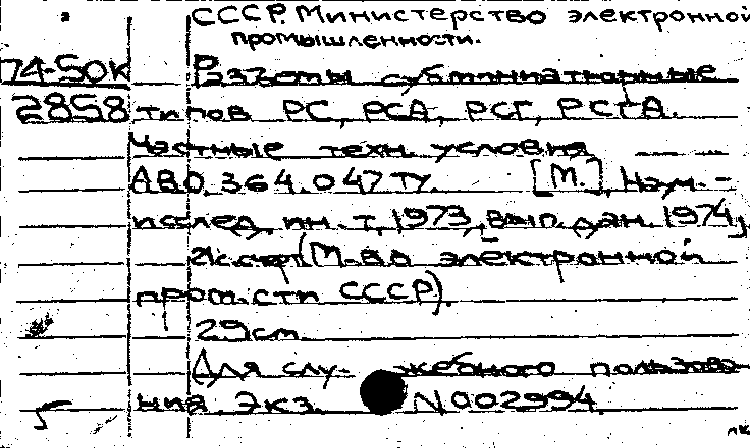 СССР. Министерство электронной
промышленности.
74-50к
2858
Разъемы субминиатюрные
типов РС, РСА, РСГ, РСГА.
Частные техн. условия
АВ0.364.047 ТУ. [М.], Науч.-
исслед. ин. т, 1973, вып. дан. 1974,
(М-во электронной
пром.сти СССР).
29см.
Для слу- жебного пользова-
ния. Экз. N 002994.